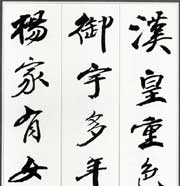 漢皇重色
御宇多年
楊家有女